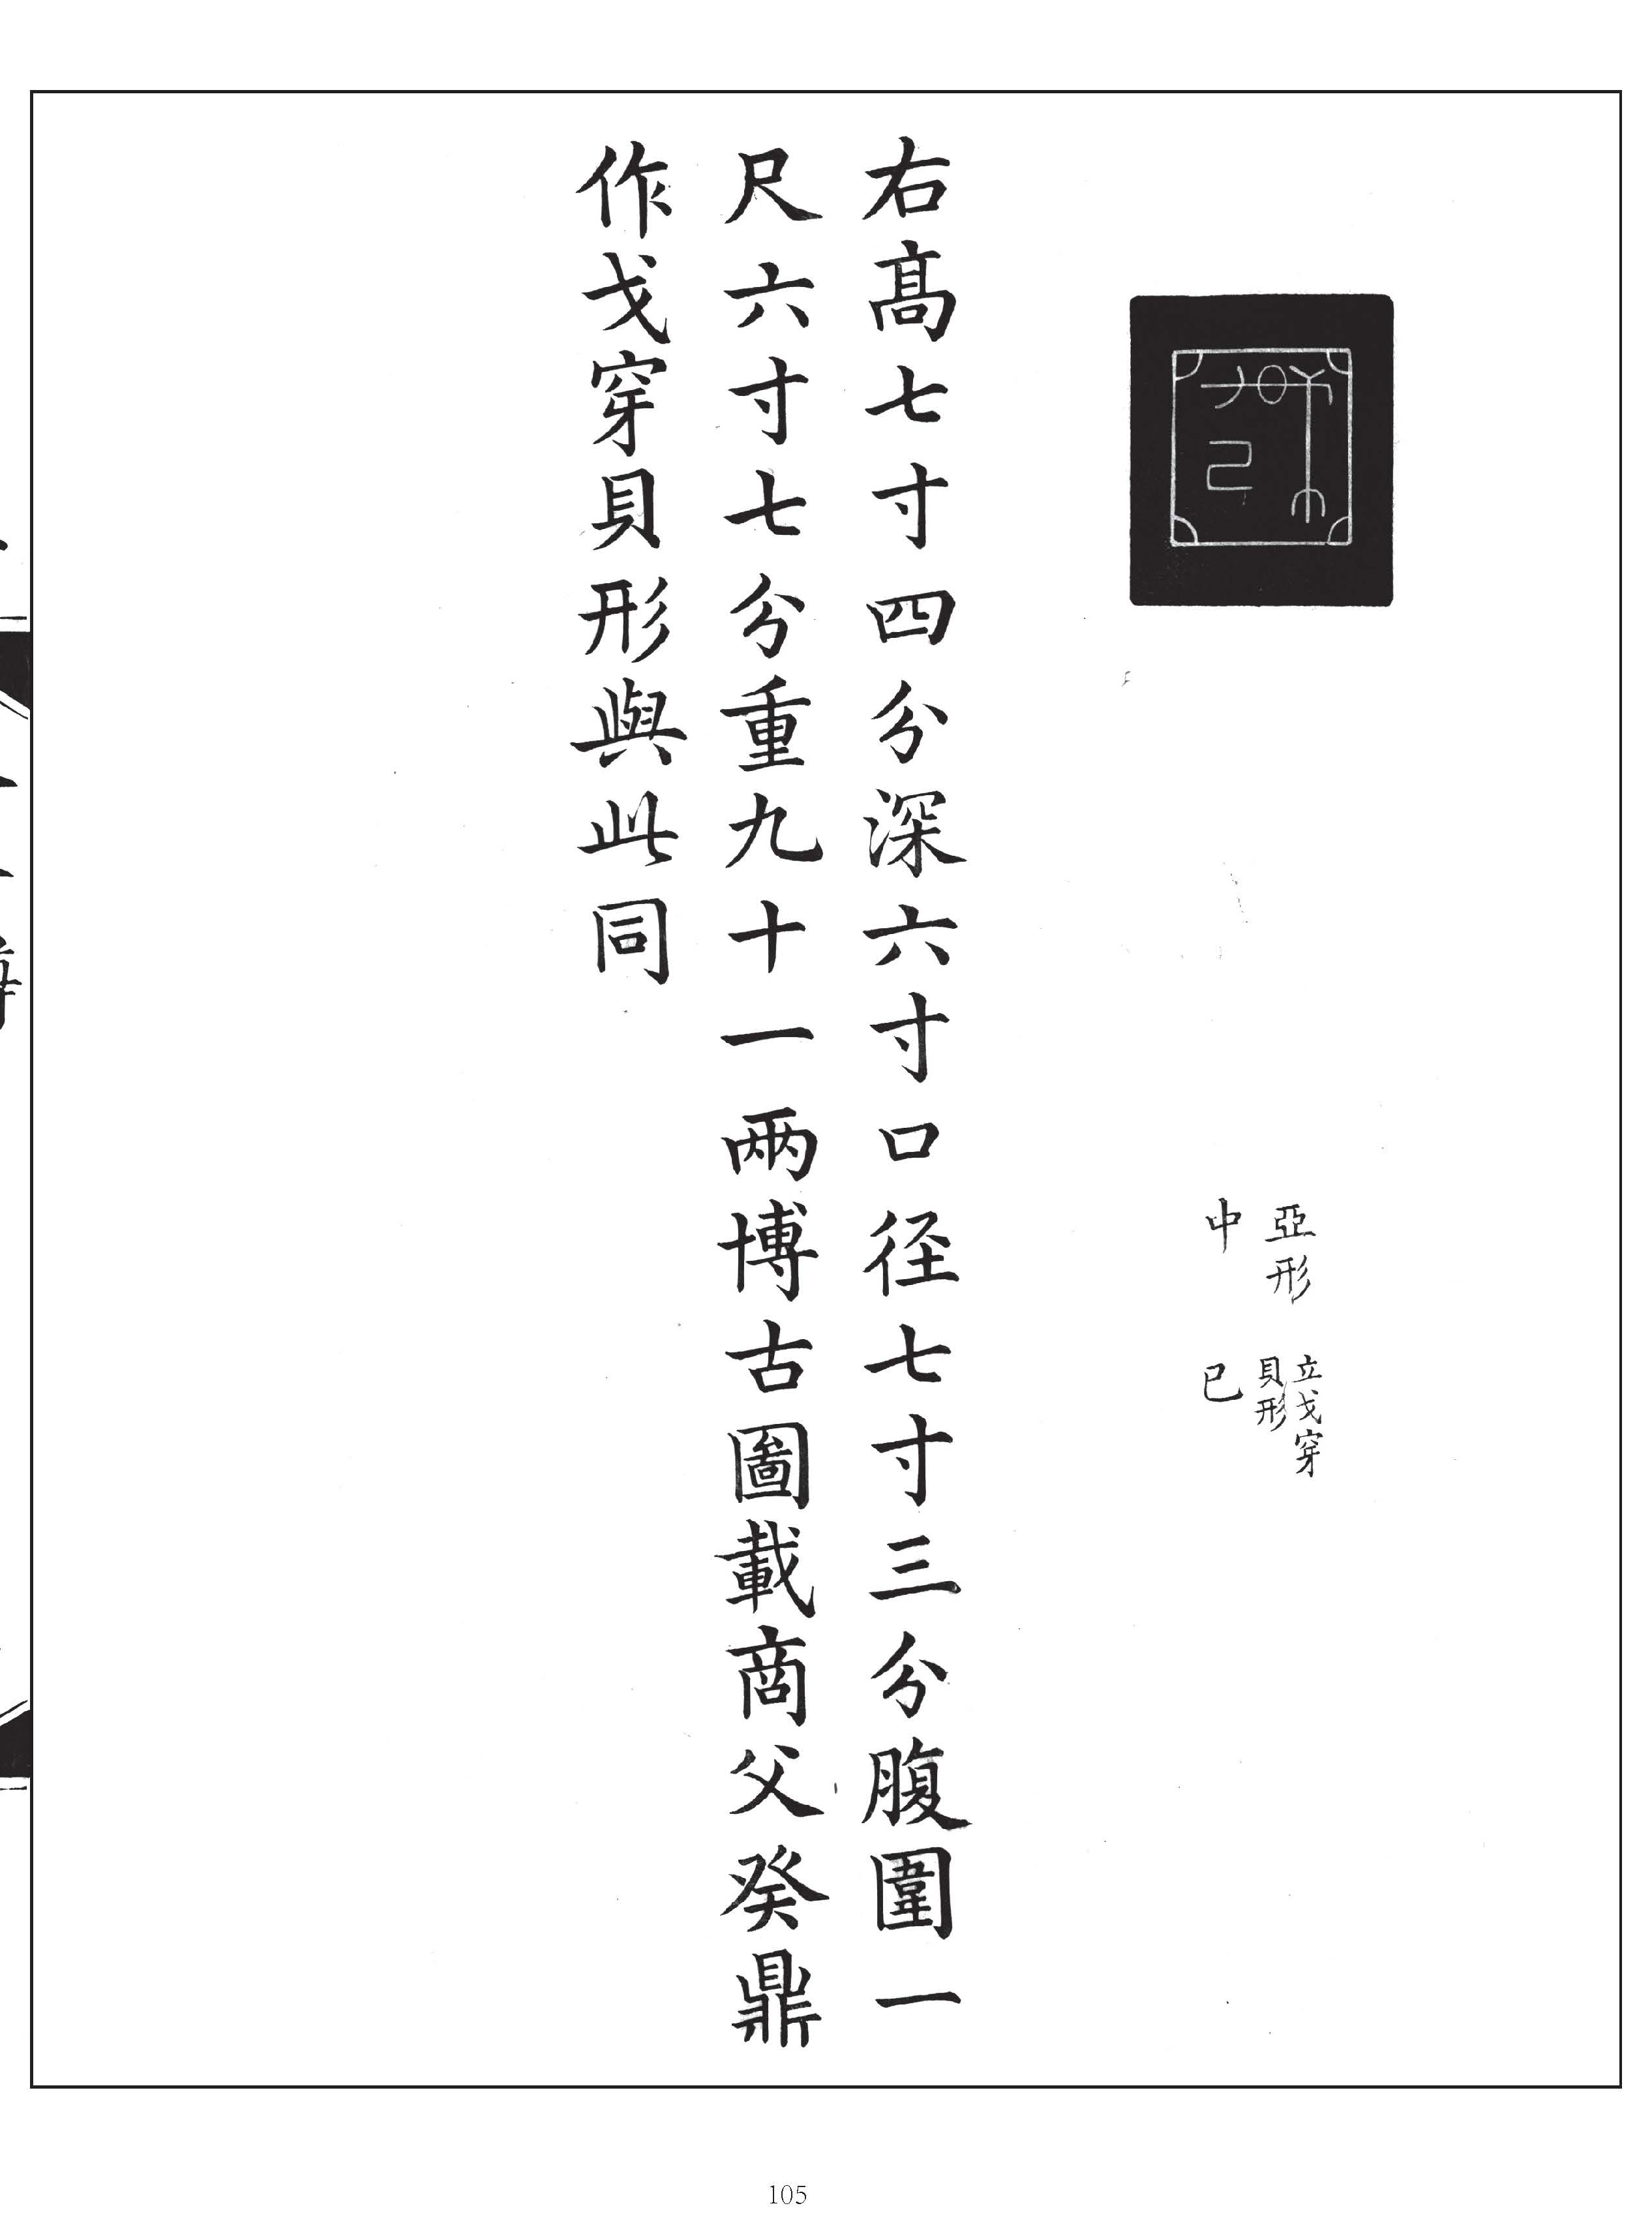 亞形 立戈穿貝形
中 已
右高七寸四分深六寸口徑七寸三分腹圍一
尺六寸七分重九十一兩博古圖載商父癸鼎
作戈穿貝形與此同
105